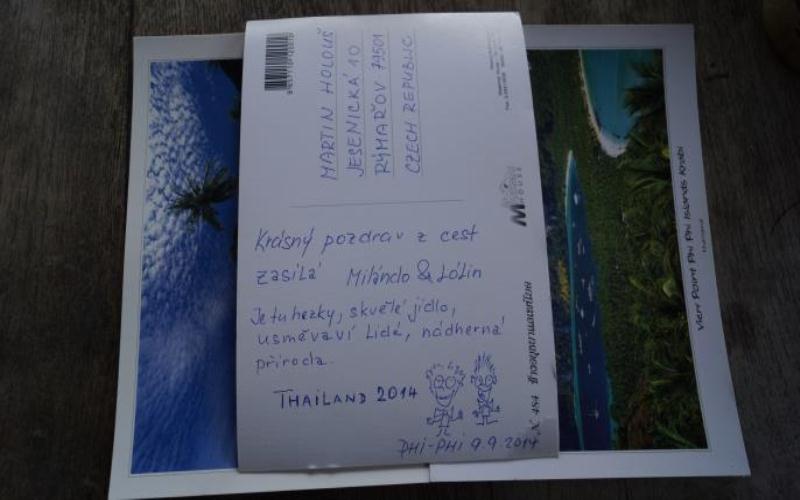 MARTIN HOLOUŠ
JESENICKÁ 10
RÝMAŘOV 79501
CZECH REPUBLIC
Krásný pozdrav z cest
zasílá Milándo & Lólin
Je tu hezky, skvělé jídlo,
usměvaví lidé, nádherná
příroda.
THAILAND 2014
PHI-PHI 9.9.2014
M
HOUSE
N 484
View Point Phi Phi Islands Krabi
THAILAND